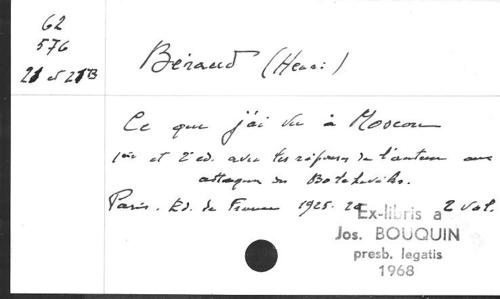 62
576
21 et 21 B
Béraud (Henri)
Ce que j'ai vu à Moscou
1ère et 2e ed. avec les réponses de l'auteur aux
attaques des Bolcheviks.
Paris. Ed. de France 1925. 2 vol.
Ex-libris a
Jos. BOUQUIN
presb. legatis
1968